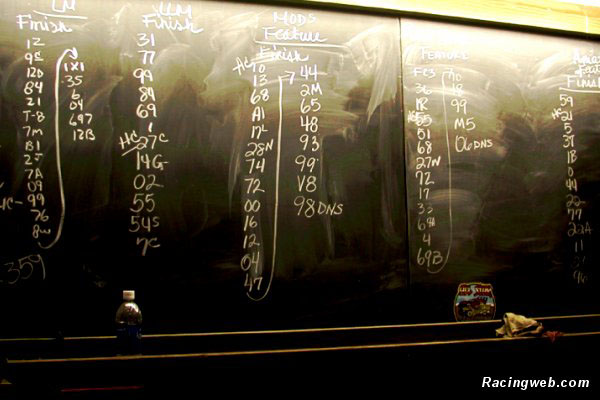 LM
Finish
12
12D
84
21
T-8
7m
B1
7A
09
99
76
8W
1X1
35
6
04
697
12B
359
LLM
Finish
31
77
99
84
69
1
HC
27C
14G
02
55
54S
7C
MODS
Feature
Finish
HC
70
13
68
A1
28N
74
72
00
16
12
04
47
44
2M
65
48
93
99
V8
98 DNS
Feature
36
1R
55
51
68
27N
72
17
33
4
69B
90
48
99
M5
06 DNS
Final
59
21
5
37
1B
0
44
22
77
22A
11
96
Racingweb.com